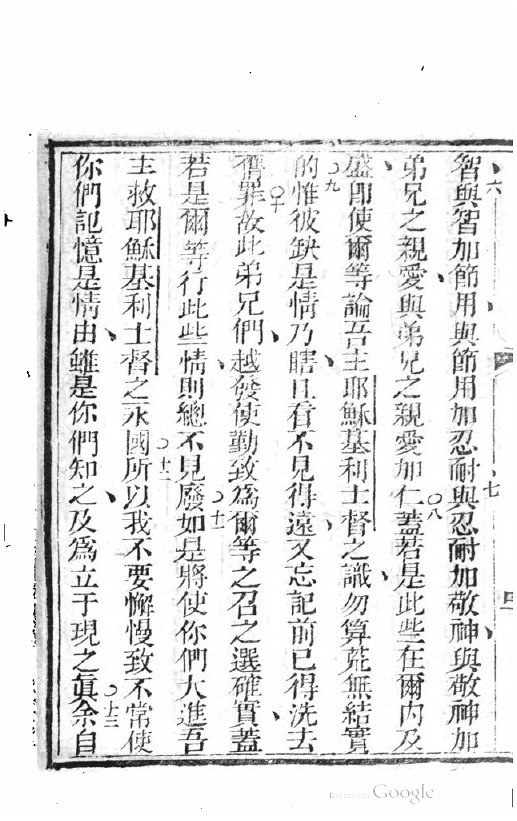 智與智加節用與節用加忍耐與忍耐加敬神與敬神加
弟兄之親愛與弟兄之親愛加仁蓋若是此些在爾內及
盛卽使爾等論吾主耶穌基利士督之識勿算荒無結實
的惟彼缺是情乃瞎且看不見得遠又忘記前已得洗去
舊罪故此弟兄們越發使勤致爲爾等之召之選確實蓋
若是爾等行此些情則總不見廢如是將使你們大進吾
主救耶穌基利士督之永國所以我不要懈慢致不常使
你們記憶是情由雖是你們知之及爲立于現之眞余自
六
七
八
九
十
十一
十二
Digitized by Google